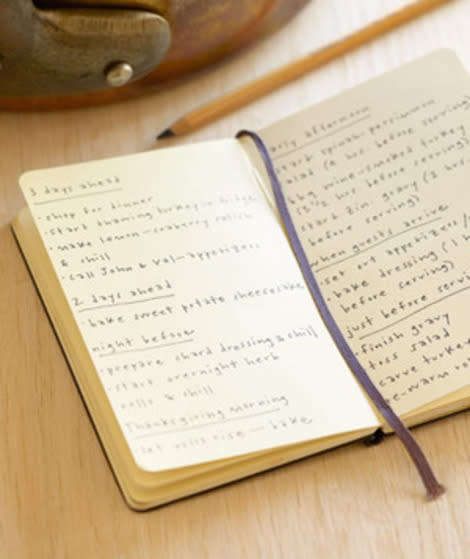 3 days ahead
• shop for dinner
• start thawing turkey in fridge
• make lemon-cranberry relish
& chill
• call John & Val-appetizers
2 days ahead
• bake sweet potato cheesecake
night before
• prepare chard dressing & chill
• start overnight herb
rolls & chill
Thanksgiving morning
let rolls rise — bake
early afternoon
start spinach-persimmon
salad (2 hrs before serving)
bbq wine-smoked turkey
hrs before serving)
start zin. gravy (2 hrs
before serving)
when guests arrive
• set out appetizers
• bake dressing (1
before serving)
just before serving
• finish gravy
toss salad
carve turkey
re-warm